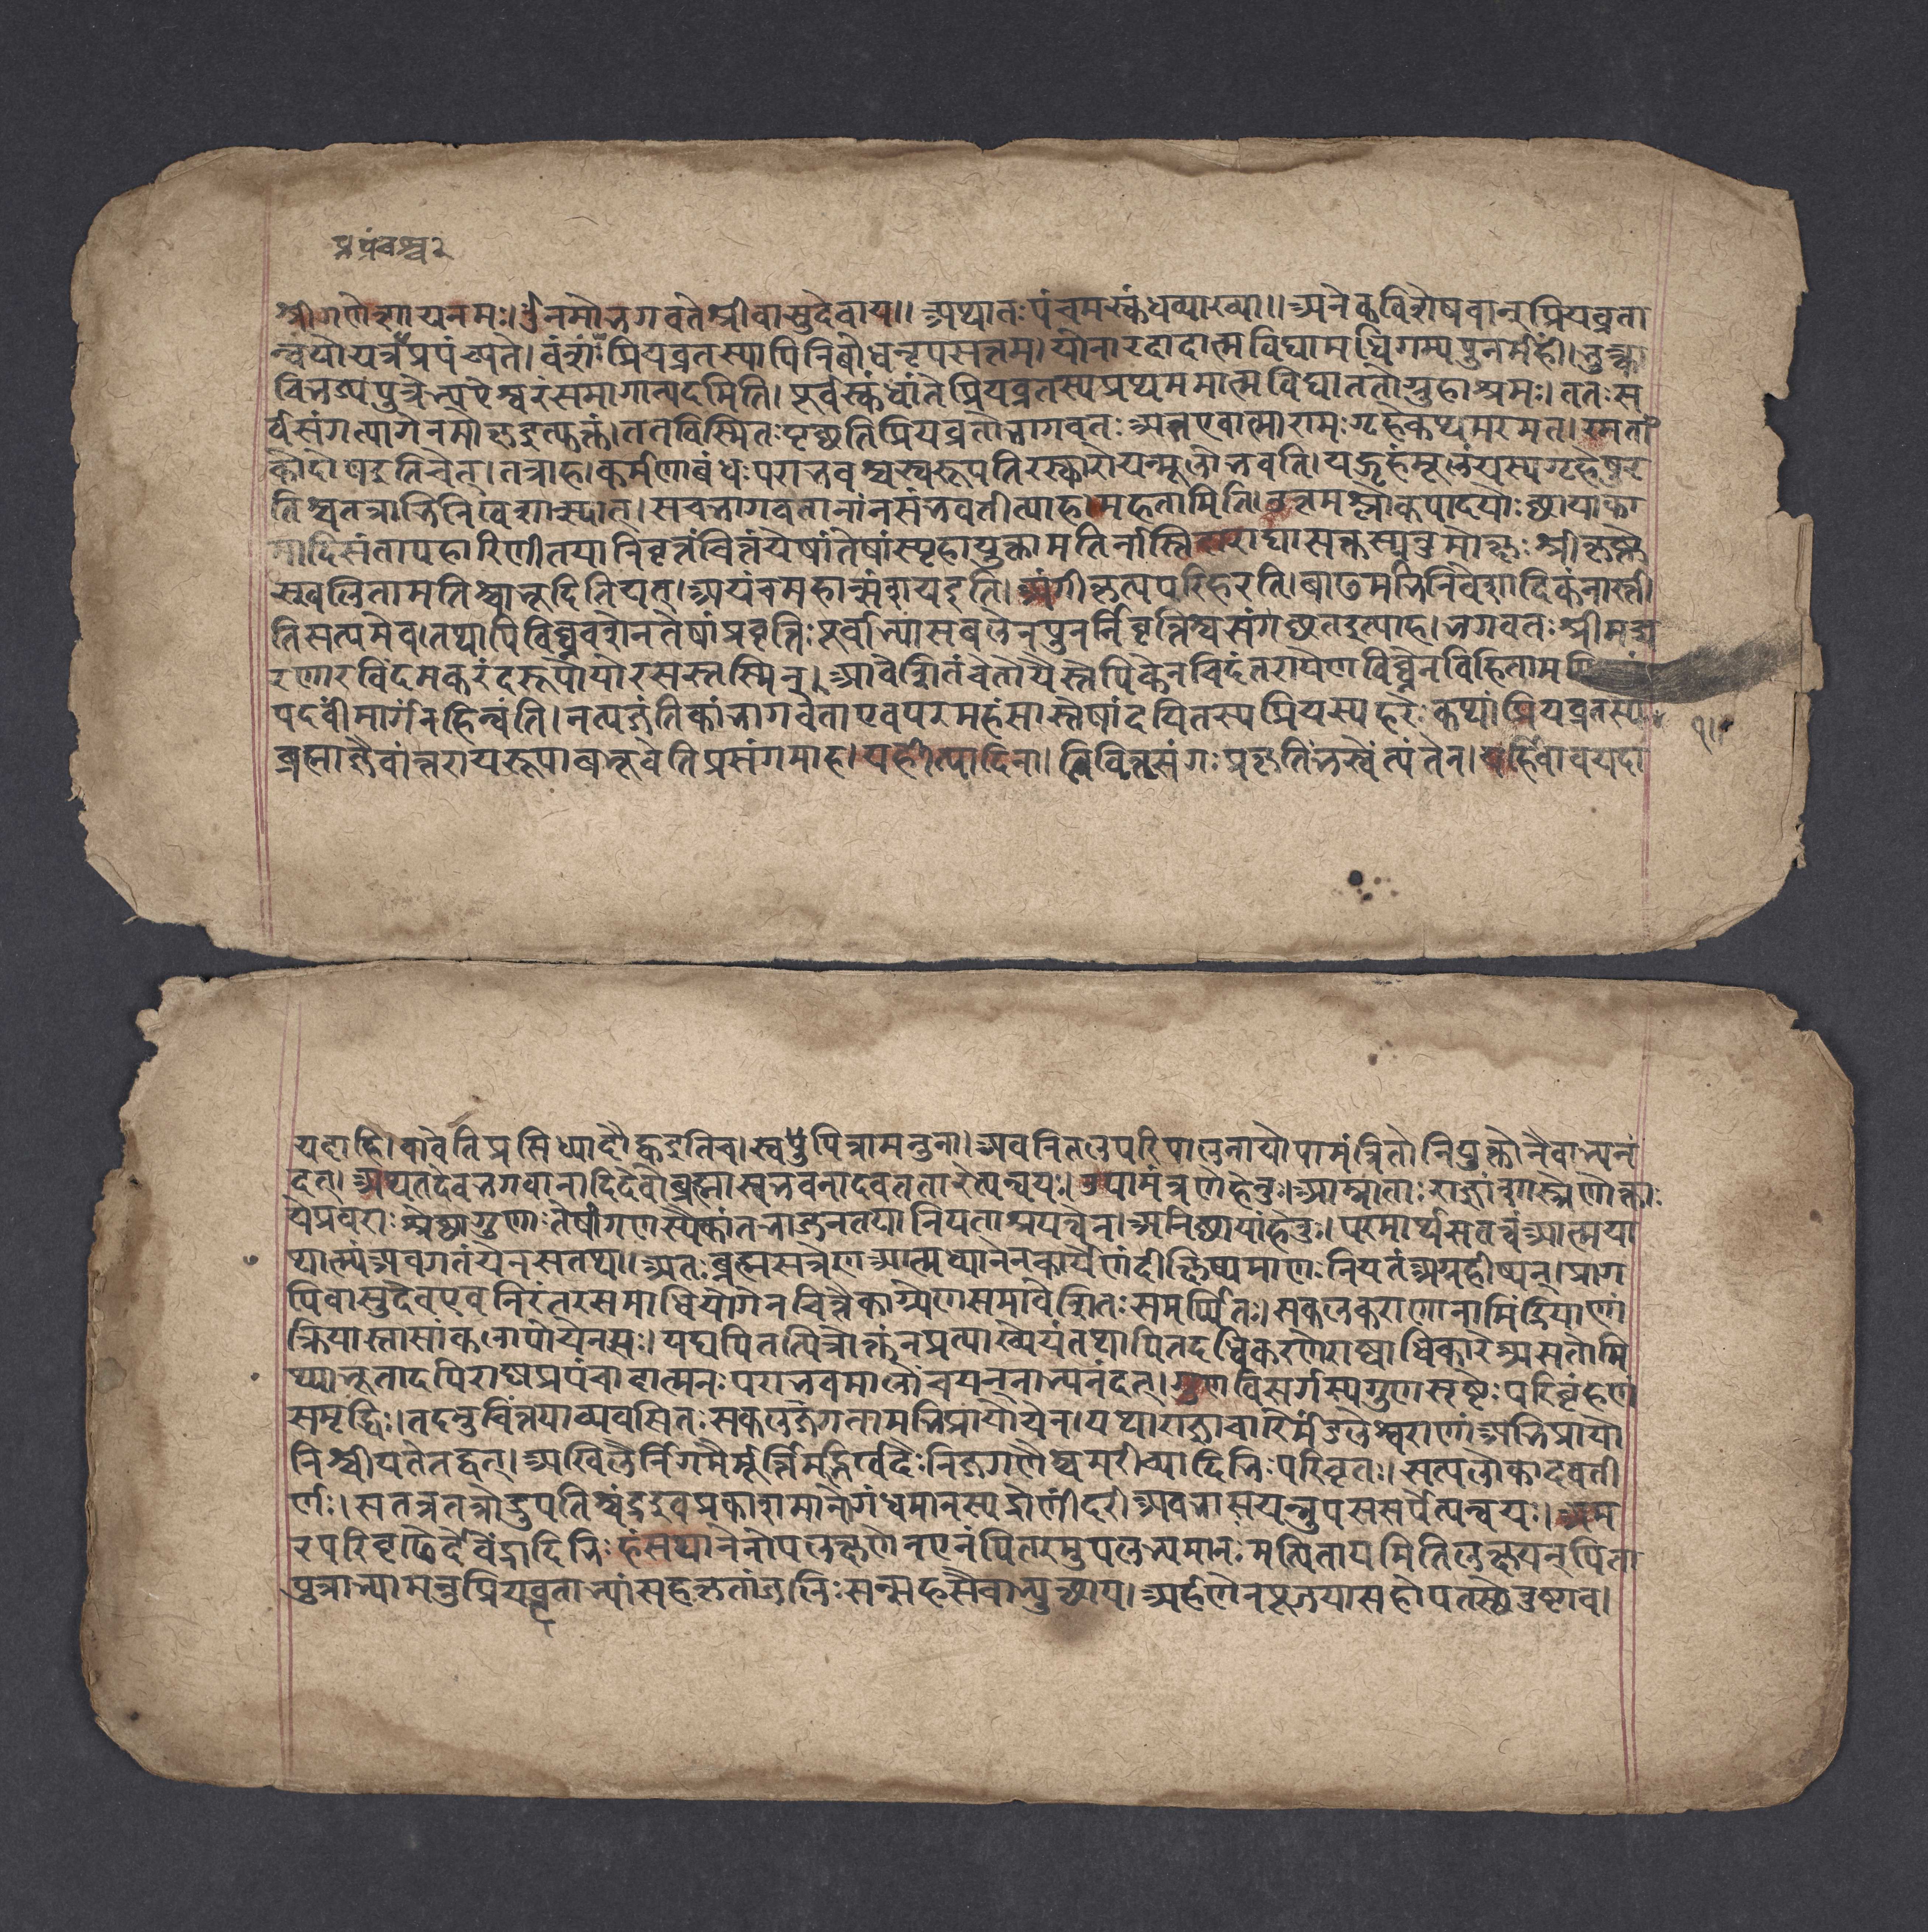 श्रीगणेशायनमः।ॐनमोभगवतेश्रीवासुदेवाय॥अथातःपंचमस्कंधव्याख्या॥अनेकविशेषवान्प्रियव्रता
न्वयोयत्रप्रपंच्यते।वंशःप्रियव्रतस्यापिनिबोधनृपसत्तम।योनारदादात्मविद्यामधिगम्यपुनर्महीं।भुक्त्वा
विभज्यपुत्रेभ्यऐश्वरंसमागात्पदमिति।पूर्वस्कंधांतेप्रियव्रतस्यप्रथममात्मविद्याततोगृहाश्रमः।ततःस
र्वसंगत्यागेनमोक्षइत्युक्तं।तत्रविस्मितःपृच्छतिप्रियव्रतोभागवतःअतएवात्मारामःगृहेकथमरमत।रमतां
कोदोषइतिचेत्।तत्राह।कर्मणाबंधःपराभवश्चस्वरूपतिरस्कारोयन्मूलोभवति।यद्गृहंमूलंयस्यगृहेषुर
तिश्चतत्राभिनिवेशात्स्यात्।सचभागवतानांनसंभवतीत्याह।महतामिति।उत्तमश्लोकपादयोःछायाका
मादिसंतापहारिणीतयानिवृतंचित्तंयेषांतेषांस्पृहायुक्तामतिर्नास्ति
स्खलितामतिश्चाभूदितियत्।अयंचमहान्संशयइति।अंगीकृत्यपरिहरति।बाढमभिनिवेशादिकंनास्ती
तिसत्यमेव।तथापिविघ्नवशेनतेषांप्रवृत्तिःपूर्वाभ्यासबलेनपुनर्निवृत्तिश्चसंगछतइत्याह।भगवतःश्रीमच्च
रणारविंदमकरंदरूपोयोरसस्तस्मिन्।आवेशितंचेतोयैस्तेपिकेनचिदंतरायेणविघ्नेनविहितामपि
पदवींमार्गंनहिन्वंति।नत्यजंतिकांभागवताएवपरमहंसास्तेषांदयितस्यप्रियस्यहरेःकथां।प्रियव्रतस्य
ब्रह्माज्ञैवांतरायरूपाबभूवेतिप्रसंगमाह।यर्हीत्यादिना।विविक्तसंगःप्रकृतिंभजस्वेत्यंतेन।यर्हिवावयदा
यदाहि।वावेतिप्रसिध्यादौहइतिच।स्वपुपित्रामनुना।अवनितलपरिपालनायोपामंत्रितोनियुक्तोनैवाभ्यनं
दत्।अथतदैवभगवानादिदेवोब्रह्मास्वभवनादवततारेत्यन्वयः।उपामंत्रणेहेतुः।आम्नाताःराज्ञांशास्त्रेणोक्ताः
येप्रवराःश्रेष्ठागुणाःतेषांगणस्यैकांतभाजनतयानियताश्रयत्वेन।अनिछायांहेतुः।परमार्थसतत्वंआत्मया
थात्म्यंअवगतंयेनसतथा।अतःब्रह्मसत्रेणआत्मध्यानेनकार्येणदीक्षिष्यमाणःनियतंअग्रहीष्यन्।प्राग
पिवासुदेवएवनिरंतरसमाधियोगेनचित्तैकाग्र्येणसमावेशितःसमर्प्पितः।सकलकरणानामिंद्रियाणां
क्रियास्तासांकलापोयेनसः।यद्यपितत्पित्रोक्तंनप्रत्याख्येयंतथापितदधिकरणेराज्याधिकारेअसतोमि
थ्याभूतादपिराज्यप्रपंचादात्मनःपराभवमालोचयन्नाभ्यनंदत्।गुणविसर्गस्यगुणसृष्टेःपरिबृंहणं
समृद्धिः।तदनुचिंतयाव्यवसितःसकलजगतामभिप्रायोयेन।यथाराजाचारैर्मंडलेश्वराणांअभिप्रायो
निश्चीयतेतद्वत्।अखिलैर्निगमैर्मूर्तिमद्भिर्वेदैःनिजगणैश्चमरीच्यादिभिःपरिवृतः।सत्यलोकादवती
र्णः।सतत्रतत्रोडुपतिश्चंद्रइवप्रकाशमानोगंधमानस्यद्रोणींदरीअवभासयन्नुपससर्पेत्यन्वयः।अम
रपरिवृढैर्देवेंद्रादिभिःहंसयानेनोपलक्षणेनएनंपितरमुपलभ्यमानःमत्पितायमितिलक्षयन्पिता
पुत्राभ्यामनुप्रियव्रताभ्यांसहकृतांजलिःसन्सहसैवाभ्युत्थाय।अर्हणेनपूजयासहोपतस्थेतुष्टाव।